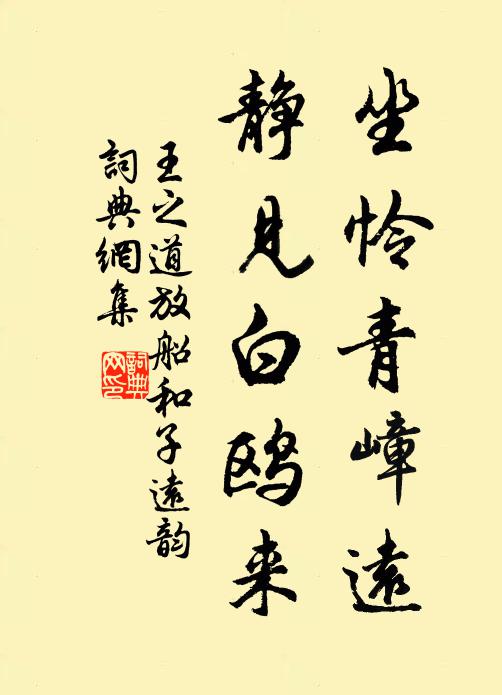 坐怜青嶂遠
静見白鸥来
王之道放船和子遠韵
詞典網集
詞典
网印